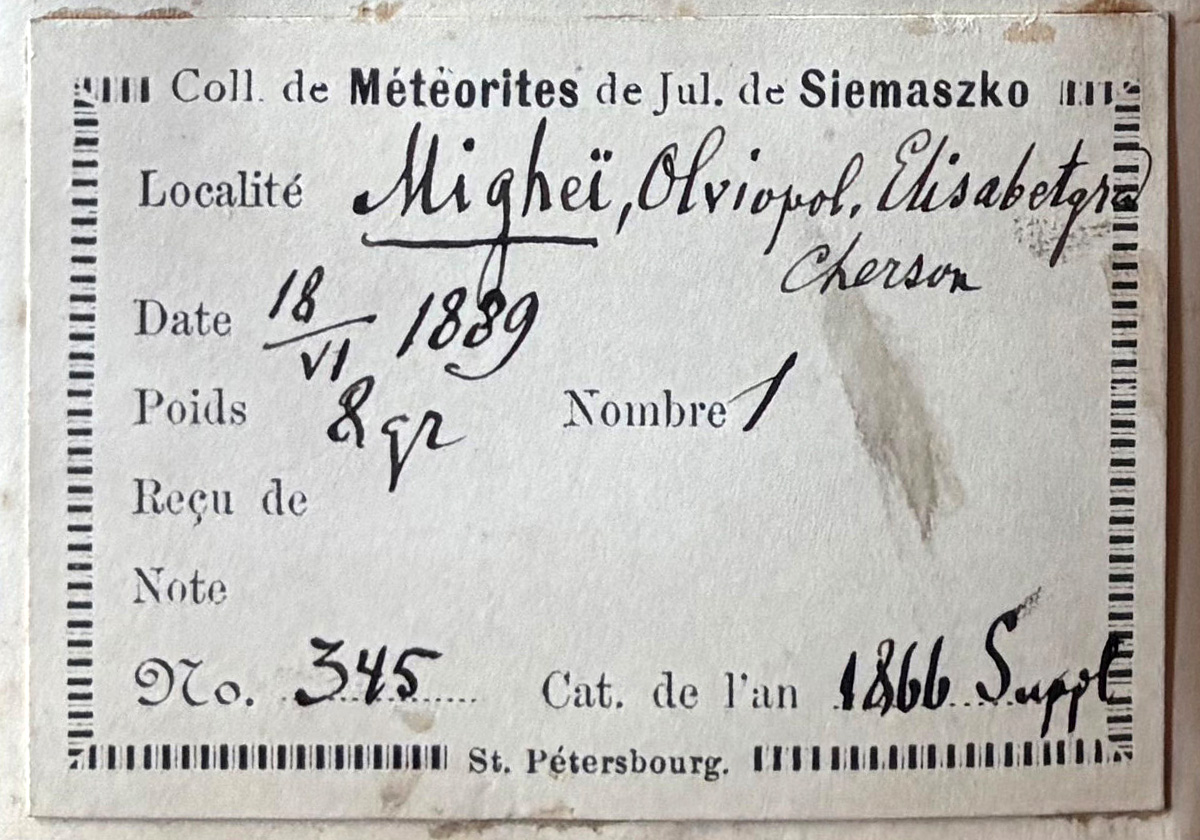 Coll. de Météorites de Jul. de Siemaszko
Localité Migheï, Olviopol, Elisabetgrad
Cherson
Date 18/VI 1889
Poids 8 gr Nombre 1
Reçu de
Note
No. 345 Cat. de l'an 1866 Suppl
St. Pétersbourg.